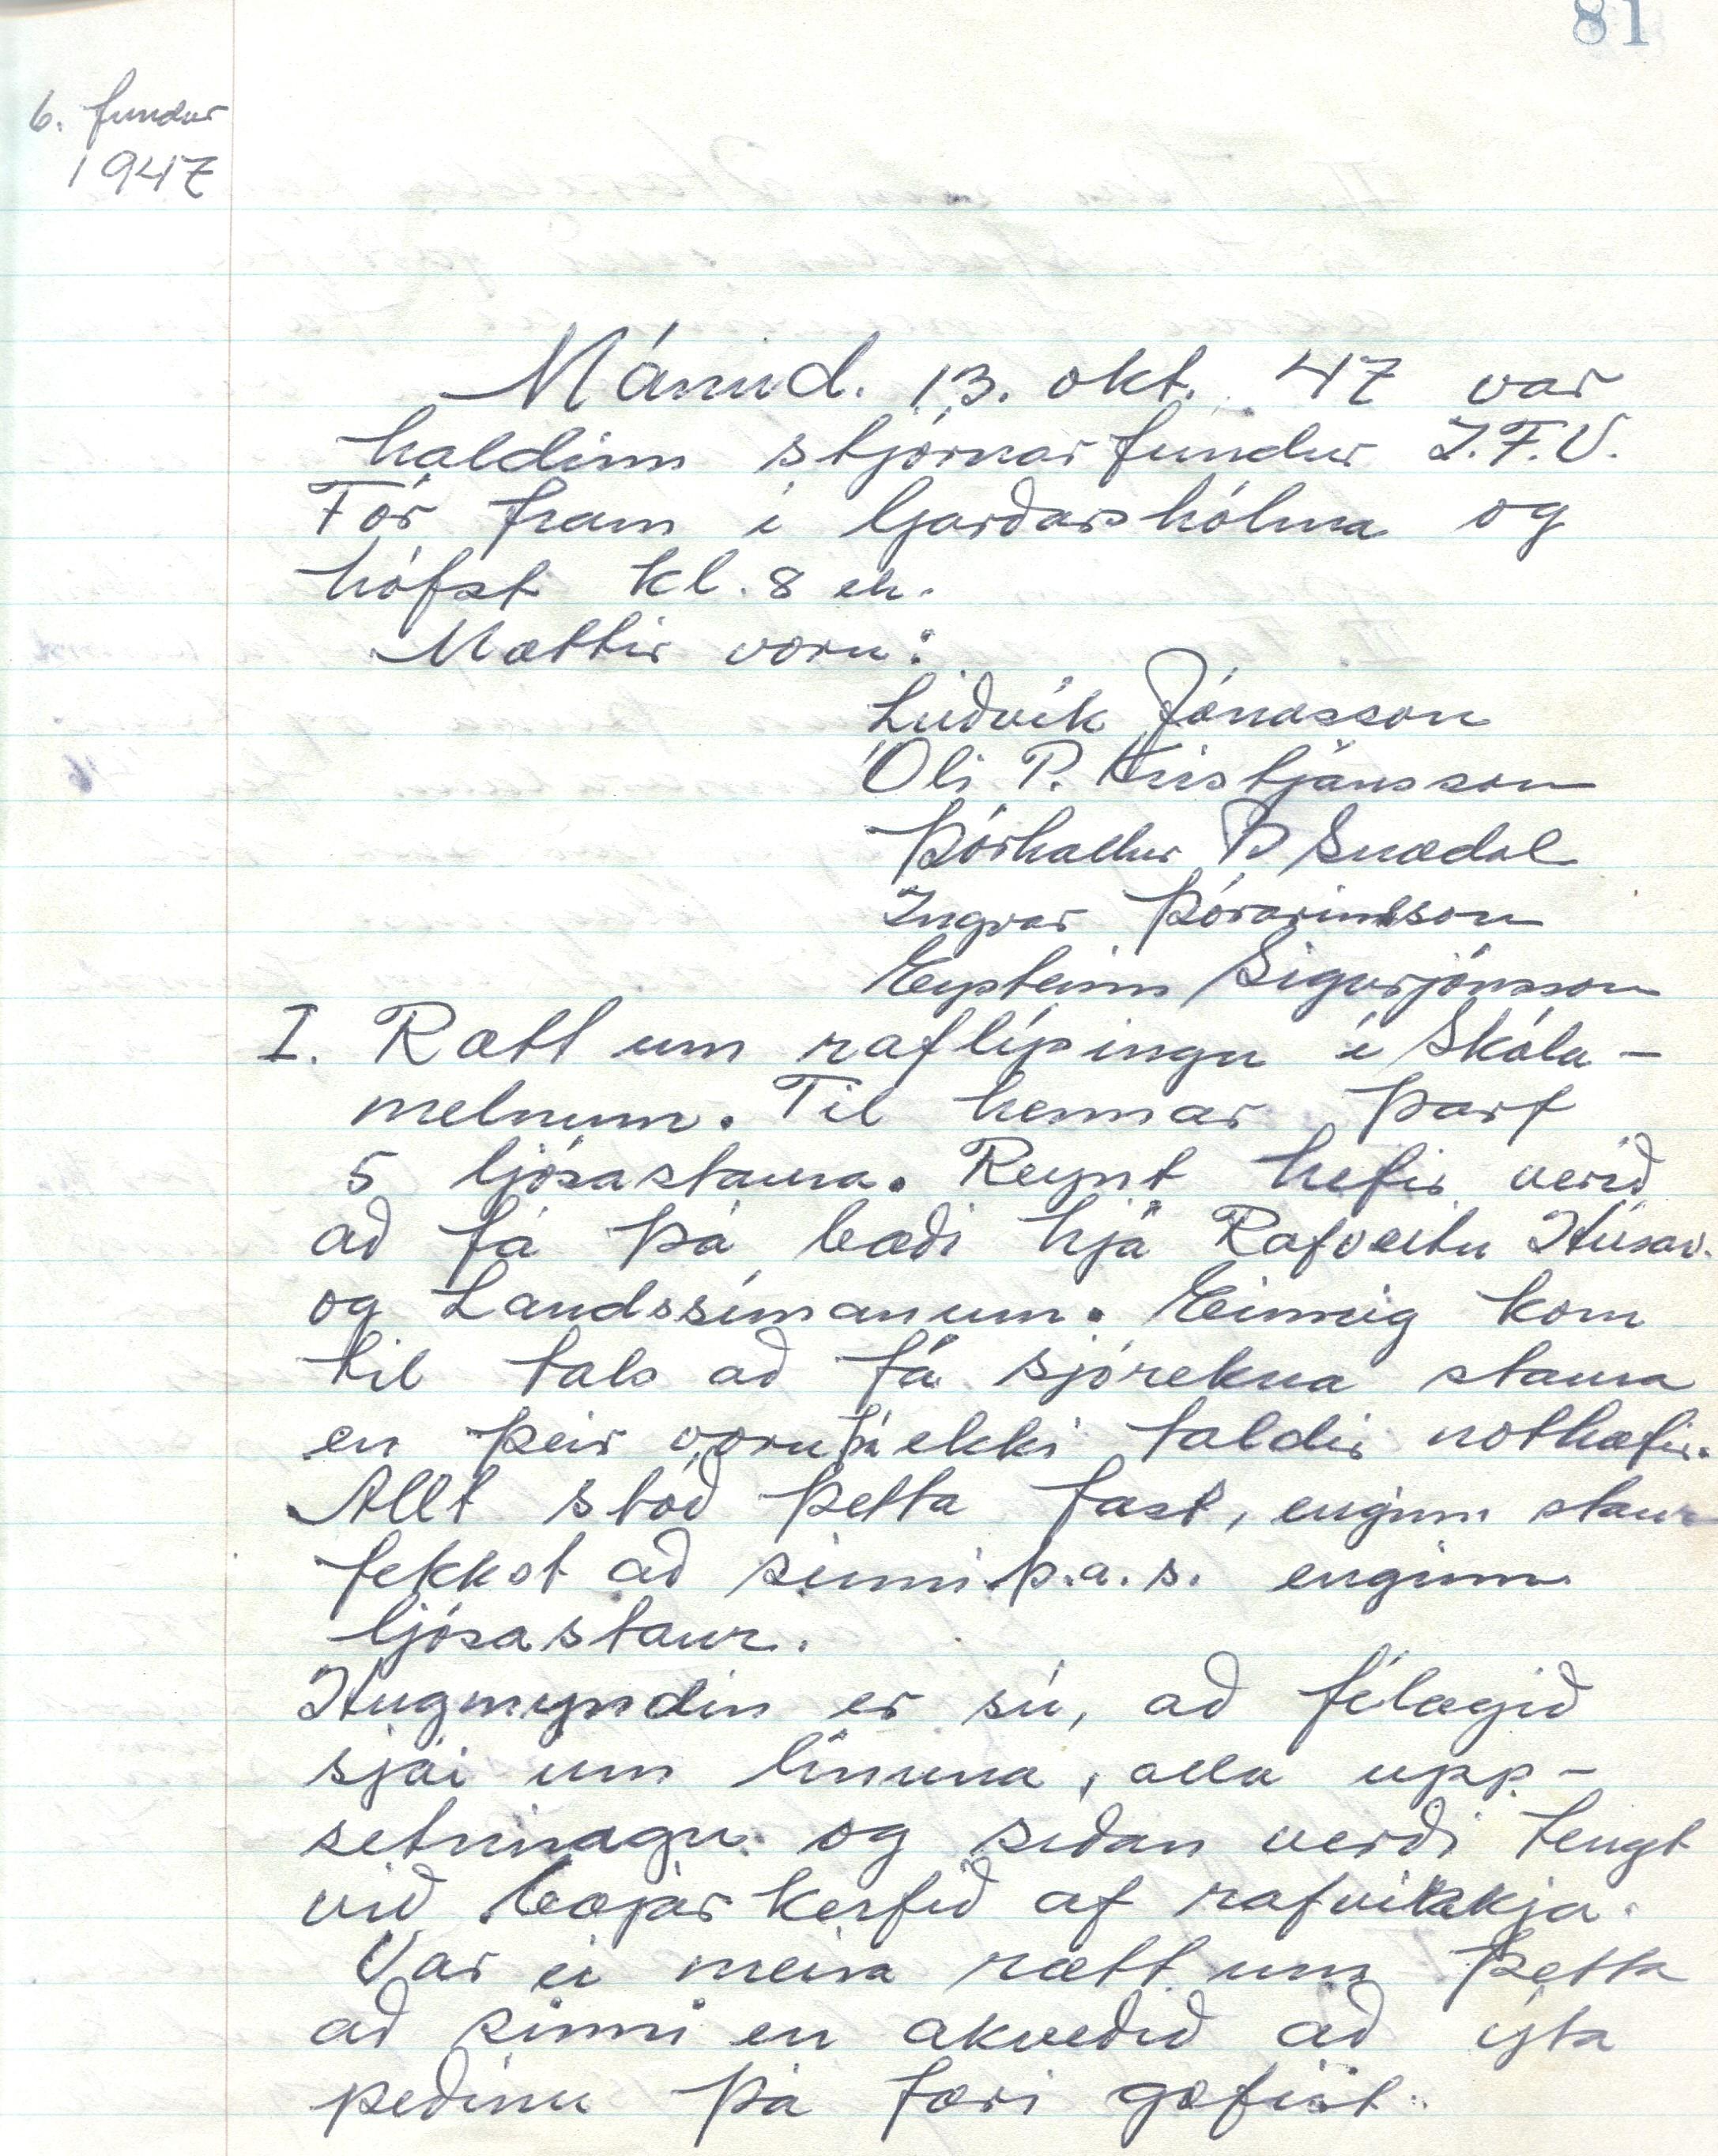 81
6. fundur
1947
Mánud. 13. okt. 47 var
haldinn stjórnarfundur I.F.V.
Fór fram í Garðarshólma og
hófst kl. 8 eh.
Mættir voru:
Lúðvík Jónasson
Óli P. Kristjánsson
Þórhallur B Snædal
Ingvar Þórarinsson
Eysteinn Sigurjónsson
I. Rætt um raflýsingu í Skála-
melnum. Til hennar þarf
5 ljósastaura. Reynt hefir verið
að fá þá bæði hjá Rafveitu Húsav.
og Landssímanum. Einnig kom
til tals að fá sjórekna staura
en þeir voru þá ekki taldir nothæfir.
Allt stóð þetta fast, enginn staur
fekkst að sinni þ.a.s. enginn
ljósastaur.
Hugmyndin er sú, að félagið
sjái um línuna, alla upp-
setninagu og síðan verði tengt
við bæjarkerfið af rafvirkja.
Var ei meira rætt um þetta
að sinni en akveðið að ýta
peðinu þá færi gæfist.